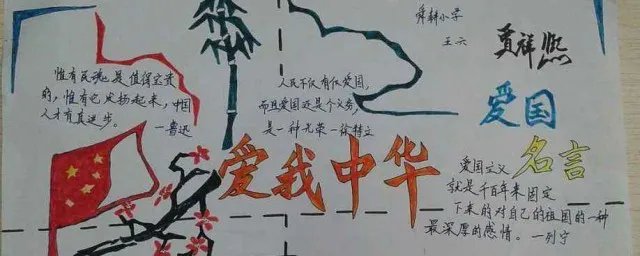 舜耕小学
王六
贾祥熙
惟有民魂是值得宝贵
的，惟有它发扬起来，中国
人才有真进步。
—鲁迅
人民不仅有权爱国，
而且爱国还是个义务，
是一种光荣—徐特立
爱国
名言
爱我中华
爱国主义
就是千百年来固定
下来的对自己的祖国的一种
最深厚的感情。—列宁